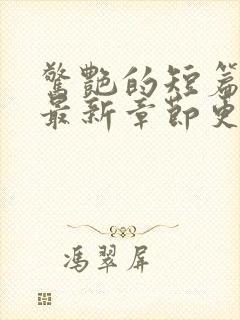 驚艷的短篇
最新章節史
馮翠屏